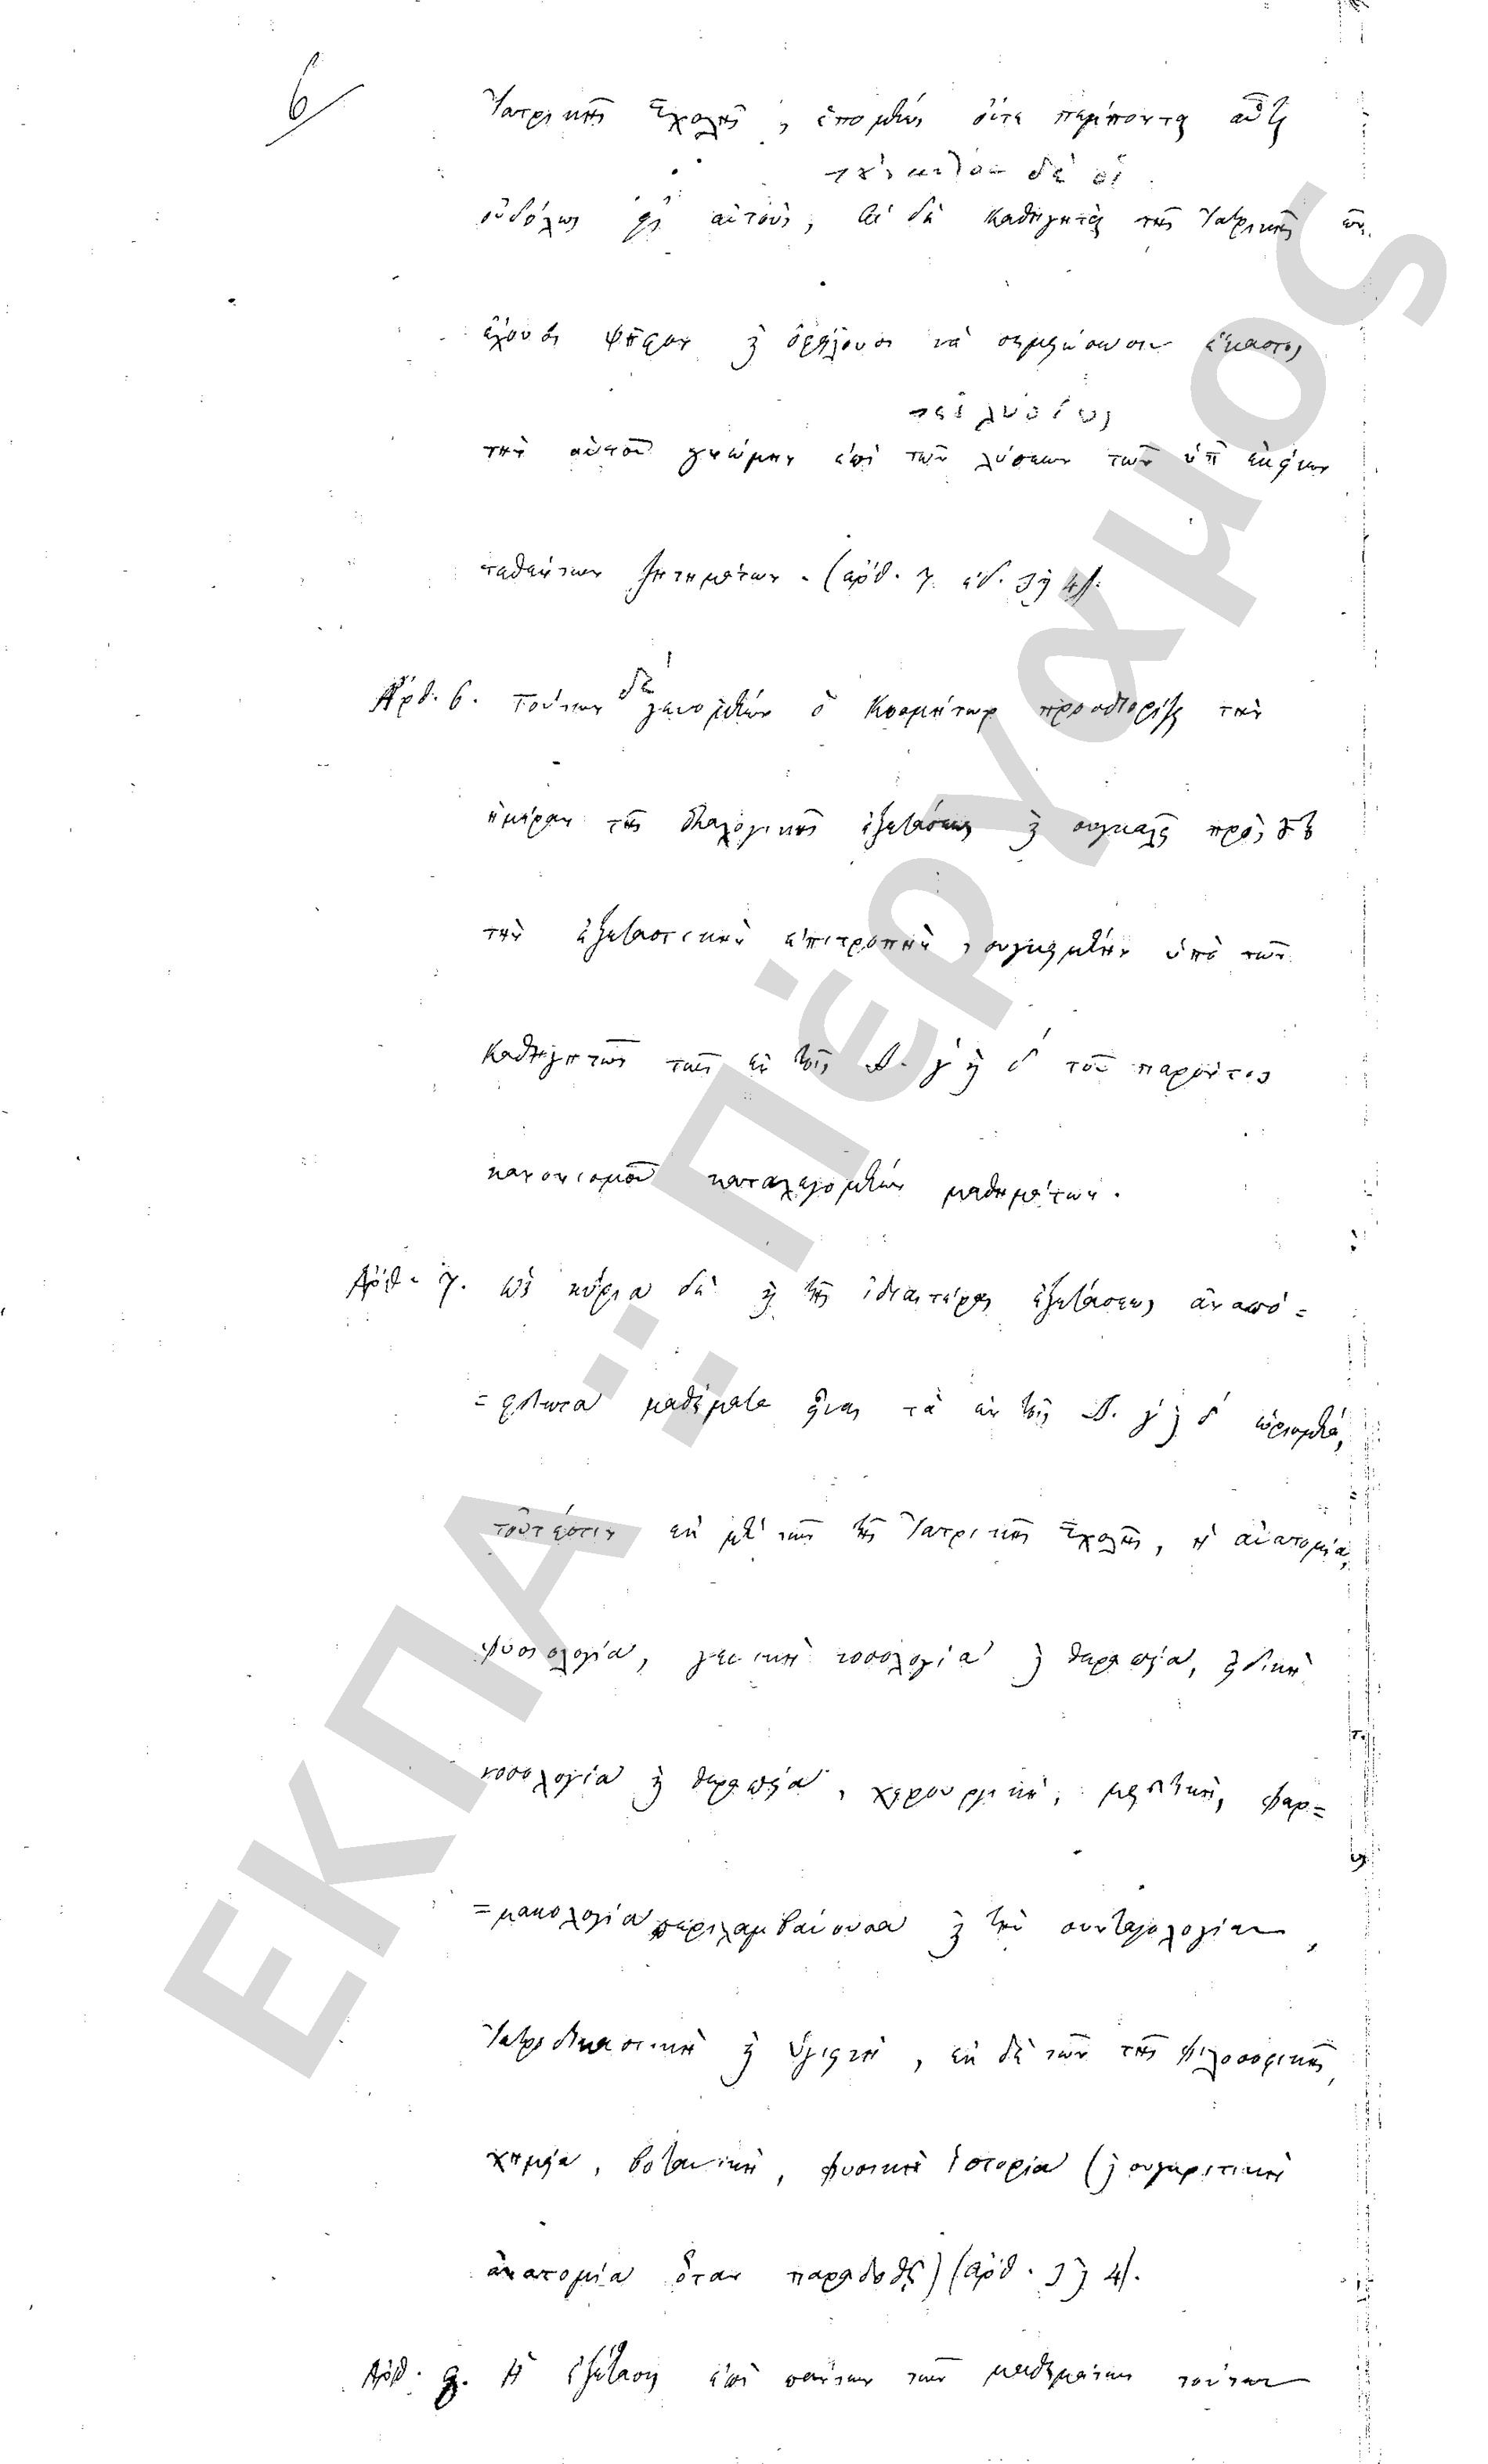 6
Ἰατρικῆς Σχολῆς, ἑπομένως οὔτε πέμπονται
οὐδόλως εἰς αὐτούς, Οἱ δὲ καθηγηταὶ τῆς Ἰατρικῆς
ἔχουσι ψῆφον καὶ ὀφείλουσι νὰ σημειώσωσιν ἕκαστος
τὴν αὑτοῦ γνώμην ἐπὶ τῶν λύσεων τῶν ὑπ' ἐκείνων
τεθέντων ζητημάτων. (ἀρθ. 7. 3 καὶ 4).
Ἀρθ. 6. Τούτων δὲ γενομένων ὁ Κοσμήτωρ προσδιορίζει τὴν
ἡμέραν τῆς διαλογικῆς ἐξετάσεως καὶ συγκαλεῖ πρὸς
τὴν ἐξεταστικὴν ἐπιτροπὴν, συγκειμένην ὑπὸ τῶν
καθηγητῶν τῶν ἐν τοῖς γ καὶ δ τοῦ παρόντος
κανονισμοῦ καταλεγομένων μαθημάτων.
Ἀρθ. 7. Ὡς κύρια δὲ καὶ τῆς ἰδιαιτέρας ἐξετάσεως ἀναπό=
=φευκτα μαθήματα εἶναι τὰ ἐν τοῖς γ καὶ δ ὡρισμένα,
τοὐτέστιν ἐκ μὲν τῶν τῆς Ἰατρικῆς Σχολῆς, ἡ ἀνατομία,
φυσιολογία, γενικὴ νοσολογία καὶ θεραπεία, εἰδικὴ
νοσολογία καὶ θεραπεία, χειρουργικὴ, μαιευτικὴ, φαρ=
=μακολογία περιλαμβάνουσα καὶ τὴν συνταγολογίαν,
Ἰατροδικαστικὴ καὶ ὑγιεινὴ, ἐκ δὲ τῶν τῆς φιλοσοφικῆς,
χημεία, βοτανικὴ, φυσικὴ ἱστορία (καὶ συγκριτικὴ
ἀνατομία ὅταν παραδοθῇ) (ἀρθ. 3 καὶ 4).
Ἀρθ. 8. Ἡ ἐξέτασις ἐπὶ πάντων τῶν μαθημάτων τούτων
ΕΚΠΑ :: Πέργαμος